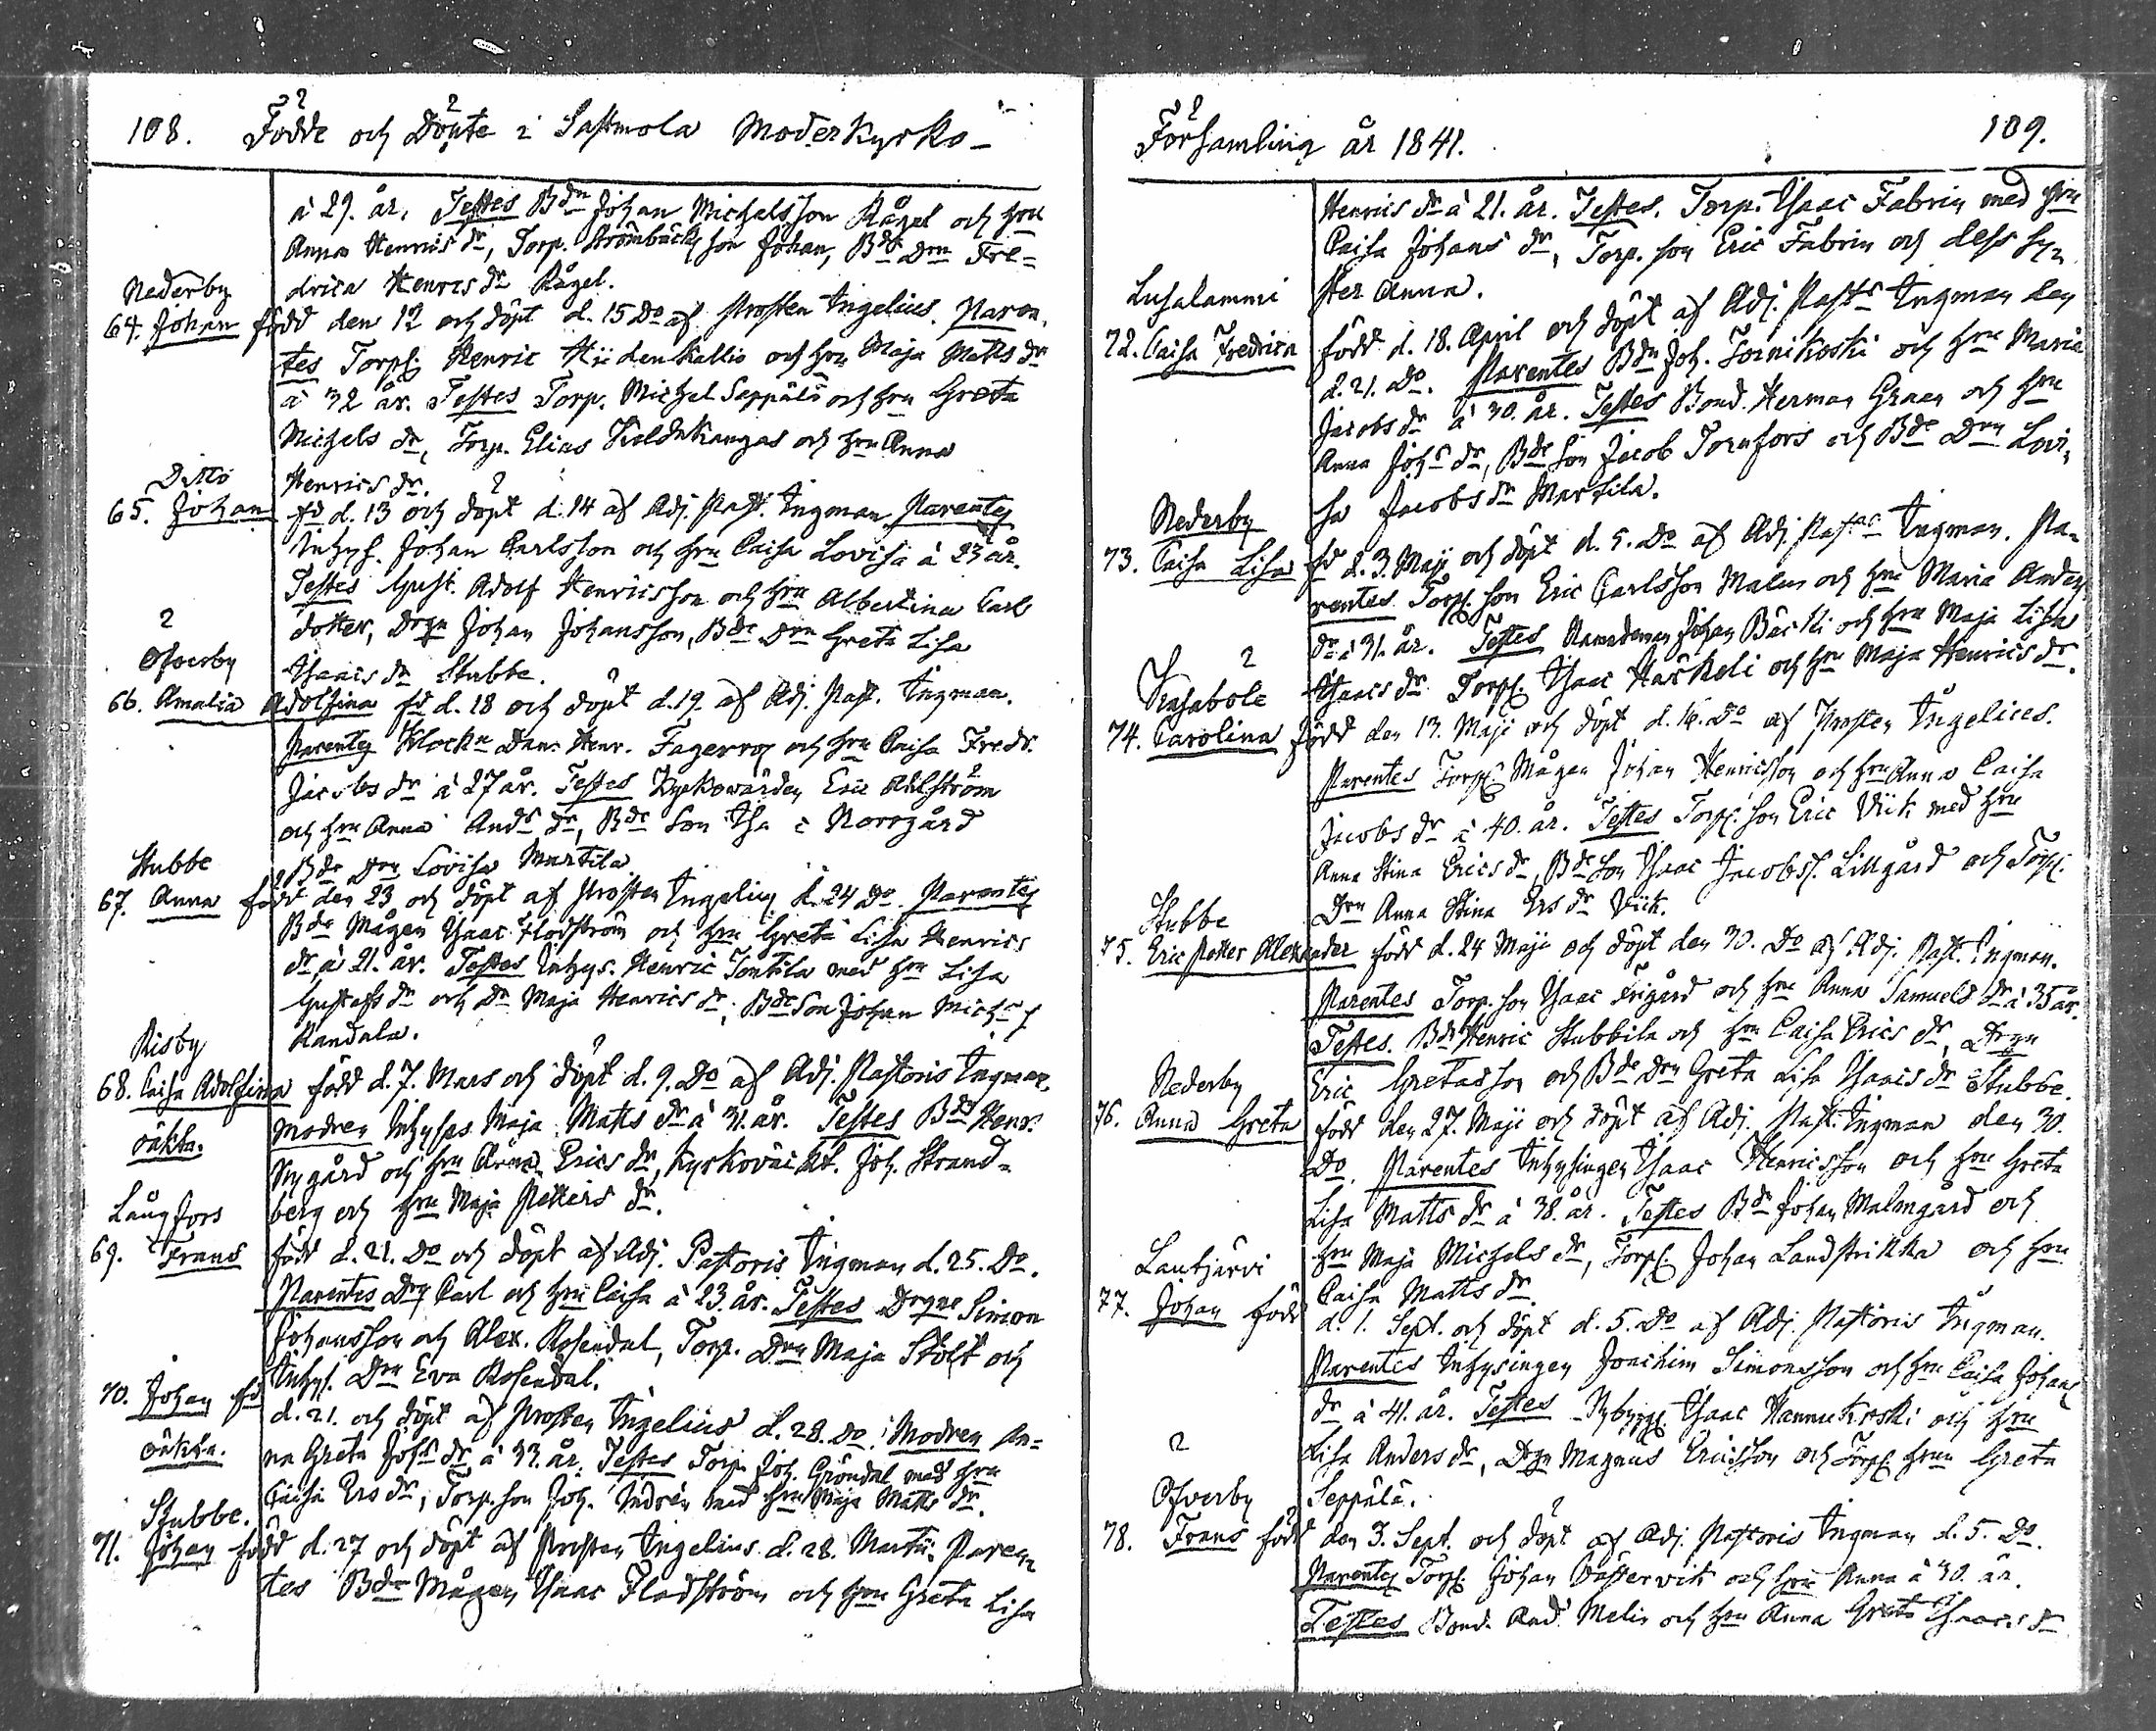 108. Födde och Döpte i Sastmola Moderkyrko-
à 29. år. Testes Bdn Johan Michelsson Rågel och hru
Anna Henrics dr, Torp. Strömbäcks son Johan, Bde Drn Fre=
drica Henrcs dr Rågel.
Nederby
64. Johan född den 12 och döpt d. 15 Do af Prosten Ingelius. Paren,
tes Torp. Henric Hiidenkallio och hru Maja Matts dr
à 32 år. Testes Torp. Michel Seppälä och hru Greta
Michels dr, Torp. Elias och hru Anna
Henrics dr.
Ditto
65. Johan fd d. 13 och döpt d. 14 af Adj. Past. Ingman. Parentes
Inhys. Johan Carlsson och hru Caisa Lovisa à 23 år.
Testes Gust. Adolf Henricsson och hru Albertina Carls
dotter, Drgn Johan Johansson, Bde Drn Greta Lisa
Isaacs dr Stubbe.
Öfverby
66. Amalia Adolfina fd d. 18 och döpt d. 19. af Adj. Past. Ingman.
Parentes Klockn Dan. Henr. Fagerros och hru Caisa Fredr.
Jacobs dr à 27 år. Testes Kyrkowärden Eric Ahlström
och hru Anna Ands dr, Bde Son Isac Norrgård
Bde Drn Lovisa Martila.
Stubbe
67. Anna född den 23 och döpt af Prosten Ingelius d. 24 Do. Parentes
Bde Mågen Isaac Flodström och hru Greta Lisa Henrics
dr à 21. år. Testes Inhys. Henric Tontila med hru Lisa
Gustafs dr och Dr Maja Henrics dr, Bde Son Johan Michs s
Randala.
Risby
68. Caisa Adolfina född d. 7. Mars och döpt d. 9. Do af Adj. Pastoris Ingman.
oäkta. Modren Inhyses Maja Matts dr à 31. år. Testes Bdn Henr.
Nygård och hru Anna Erics dr, Kyrkoväkt. Joh. Strand=
berg och hru Maja Petters dr.
Långfors
69. Frans född d. 21. Do och döpt af Adj. Pastoris Ingman d. 25. Do.
Parentes Drg Carl och hru Caisa à 23. år. Testes Drgne Simon
Johansson och Alex. Rosendal, Torp. Drn Maja Stolt och
Inhys. Drn Eva Rosendal.
70. Johan fd d. 21. och döpt af Prosten Ingelius d. 28. Do. Modren An=
oäkta. na Greta Johs dr à 33. år. Testes Torp. Joh. Gröndal med hru
Caisa Ers dr, Torp. son Joh. Indrén med hru Maja Matts dr.
Stubbe.
71. Johan född d. 27 och döpt af Prosten Ingelius d. 28. Martii. Paren,
tes Bde Mågen Isaac Flodström och hru Greta Lisa
Församling år 1841. 109.
Henrics dr à 21. år. Testes. Torp. Isaac Fabrin med hru
Caisa Johans dr, Torp. son Eric Fabrin och dess sy,
ster Anna.
Lusalammi
72. Caisa Fredrica född d. 18. April och döpt af Adj. Pasts Ingman den
d. 21. Do. Parentes Bdn Joh. Tornikoski och hru Maria
Jacobs dr à 30. år. Testes Bond. Herman Graan och hru
Anna Johs dr, Bde Son Jacob Tornfors och Bde Drn Lovi,
sa Jacobs dr Martila.
Nederby
73. Caisa Lisa fd d. 3. Maji och döpt d. 5. Do af Adj. Pastris Ingman. Pa=
rentes Torp. son Eric Carlsson Malm och hru Maria Anders
dr à 31. år. Testes Nämndeman Johan Bäcki och hru Maja Lisa
Isaacs dr Torp. Isaac Härkeli och hru Maja Henrics dr.
Kasaböle
74. Carolina född den 13. Maji och döpt d. 16. Do af Prosten Ingelius.
Parentes Torp. Mågen Johan Henricsson och hru Anna Caisa
Jacobs dr à 40. år. Testes Torp. son Eric Viik med hru
Anna Stina Erics dr, Bde Son Isaac Jacobss. Lillgård och Torp.
Drn Anna Stina Ers dr Viik.
Stubbe
75. Eric Petter Alexander född d. 24 Maji och döpt den 30. Do af Adj. Past. Ingman.
Parentes Torp. son Isaac Frigård och hru Anna Samuels dr à 35 år.
Testes. Bdn Henric Stubbila och hru Caisa Erics dr, Drgn
Eric Gretasson och Bde Drn Greta Lisa Isaacs dr Stubbe.
Nederby
76. Anna Greta född den 27. Maji och döpt af Adj. Past. Ingman den 30.
Do. Parentes Inhysingen Isaac Henricsson och hru Greta
Lisa Matts dr à 38. år. Testes Bdn Johan Malmgård och
hru Maja Michels dr, Torp. Johan Landstrikka och hru
Caisa Matts dr.
Lautjärvi
77. Johan född d. 1. Sept. och döpt d. 5. Do af Adj. Pastoris Ingman.
Parentes Inhysingen Joachim Simonsson och hru Caisa Johans
dr à 41. år. Testes Nybygg. Isaac Hannukoski och hru
Lisa Anders dr, Drgn Magnus Ericsson och Torp. hrun Greta
Seppälä.
Öfverby
78. Frans född den 3. Sept. och döpt af Adj. Pastoris Ingman d. 5. Do.
Parentes Torp. Johan Västervik och hru Anna à 30. år.
Testes Bond. And. Melin och hru Anna Greta Isaacs dr